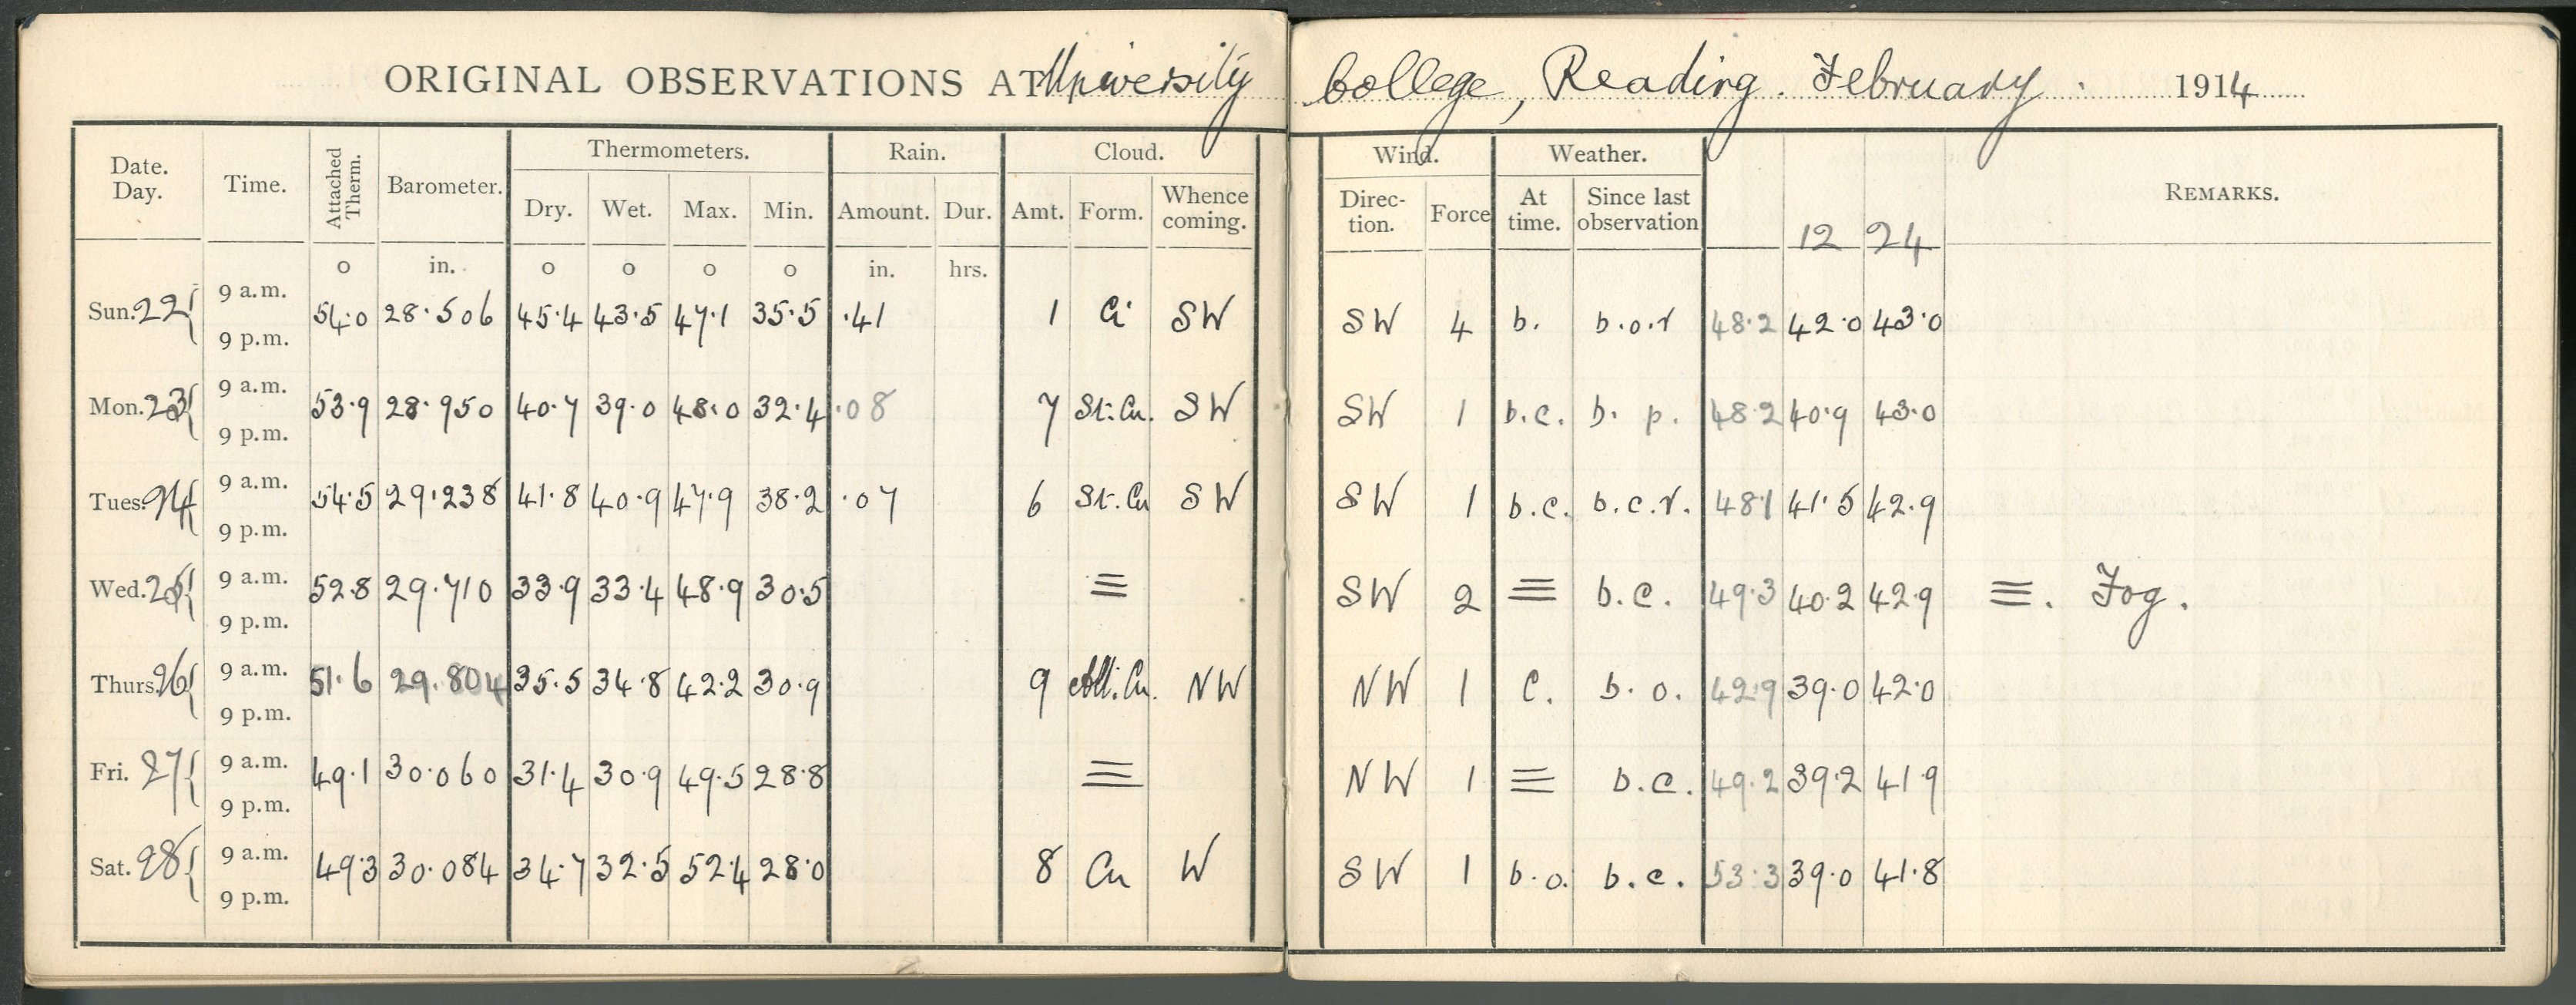 ORIGINAL OBSERVATIONS AT University College, Reading. February. 1914
Date. Day. Time. Attached Therm. Barometer. Thermometers. Rain. Cloud. Wind. Weather. REMARKS.
Dry. Wet. Max. Min. Amount. Dur. Amt. Form. Whence coming. Direc- tion. Force At time. Since last observation 12 24
o in. o o o o in. hrs.
Sun. 22 { 9 a.m. 9 p.m. 54.0 28.506 45.4 43.5 47.1 35.5 .41 1 Ci SW SW 4 b. b.o.r 48.2 42.0 43.0
Mon. 23 { 9 a.m. 9 p.m. 53.9 28.950 40.7 39.0 48.0 32.4 .08 7 St.Cu. SW SW 1 b.c. b. p. 48.2 40.9 43.0
Tues. 24 { 9 a.m. 9 p.m. 54.5 29.238 41.8 40.9 47.9 38.2 .07 6 St.Cu SW SW 1 b.c. b.c.r. 48.1 41.5 42.9
Wed. 25 { 9 a.m. 9 p.m. 52.8 29.710 33.9 33.4 48.9 30.5 ≡ SW 2 ≡ b.c. 49.3 40.2 42.9 ≡. Fog.
Thurs. 26 { 9 a.m. 9 p.m. 51.6 29.804 35.5 34.8 42.2 30.9 9 Cu. NW NW 1 C. b. o. 42.9 39.0 42.0
Fri. 27 { 9 a.m. 9 p.m. 49.1 30.060 31.4 30.9 49.5 28.8 ≡ NW 1 ≡ b.c. 49.2 39.2 41.9
Sat. 28 { 9 a.m. 9 p.m. 49.3 30.084 34.7 32.5 52.4 28.0 8 Cu W SW 1 b.o. b.c. 53.3 39.0 41.8